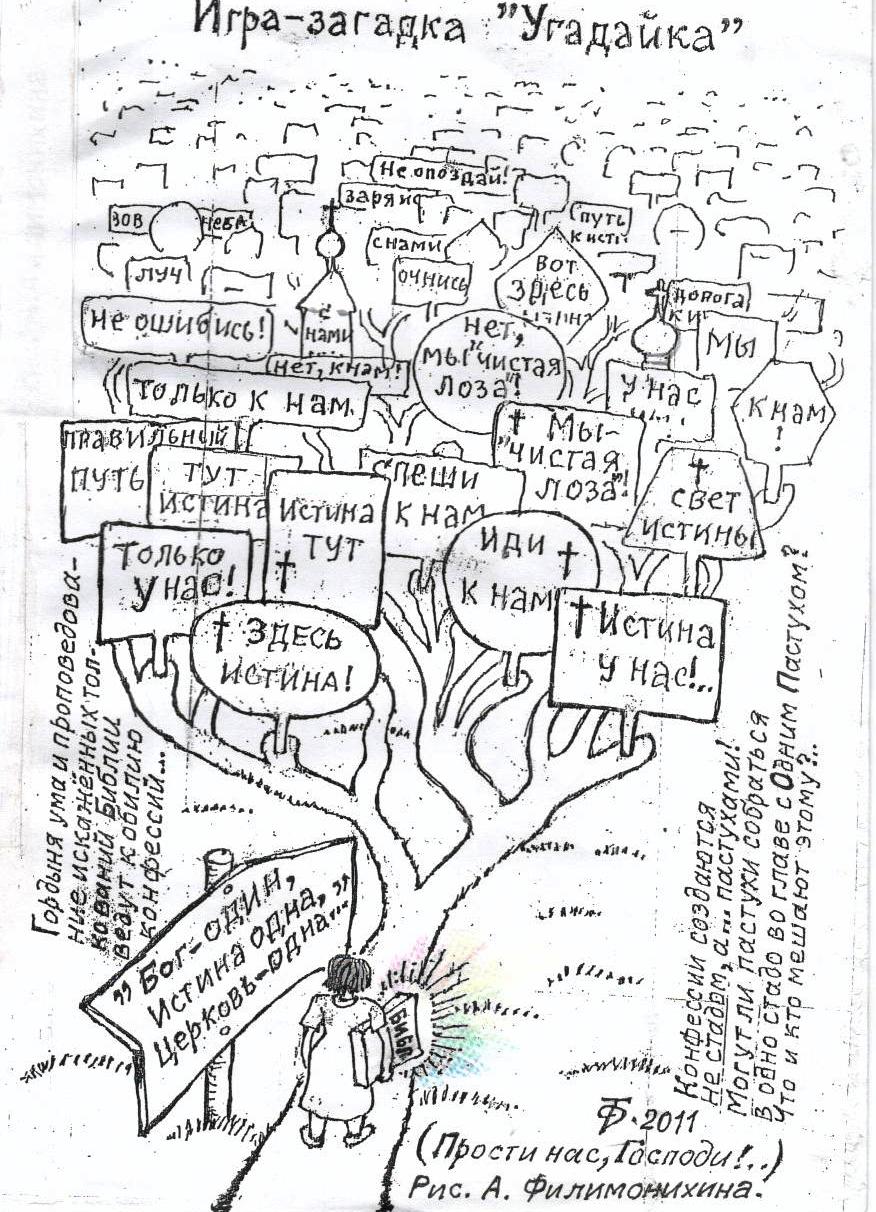 Игра-загадка "Угадайка"
Не опоздай!
заря ис
зов
неба
путь
к исти
с нами
луч
очнись
вот
здесь
истина
дорога
к и
не ошибись!
с
нами
нет,
мы "чистая
лоза"!
мы
нет, к нам!
только к нам.
у нас
к нам
!
правильный
путь
тут
истина
спеши
к нам
мы-
"чистая
лоза"!
свет
истины
истина
тут
только
у нас!
иди
к нам
здесь
истина!
Истина
у нас!...
Гордыня ума и проповедова-
ние искажённых тол-
кований Библии
ведут к обилию
конфессий...
"Бог-один,
Истина одна,
Церковь-одна..."
Библ
Конфессии создаются
не стадом, а... пастухами!
Могут ли пастухи собраться
в одно стадо во главе с Одним Пастухом?
Что и кто мешают этому?..
2011
(Прости нас, Господи!..)
Рис. А. Филимонихина.